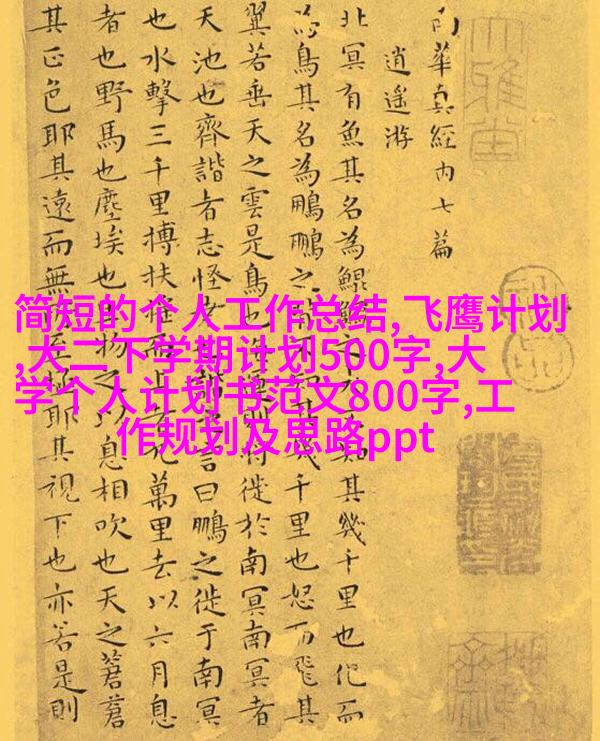 南華真經内七篇
逍遥游
北冥有魚其名為鯤鯤之大不知其幾千里也化而
為鳥其名為鵬鵬之背不知其幾千里也怒而飛其
翼若垂天之雲是鳥也海運則將徙於南冥南冥者
天池也齊諧者志怪者也諧之言曰鵬之徙于南冥
也水擊三千里搏扶摇而上者九萬里去以六月息
者也野馬也塵埃也生物之以息相吹也天之蒼蒼
其正色耶其遠而無所至極耶其視下也亦若是則
简短的个人工作总结,飞鹰计划
,大二下学期计划500字,大
学个人计划书范文800字,工
作规划及思路ppt